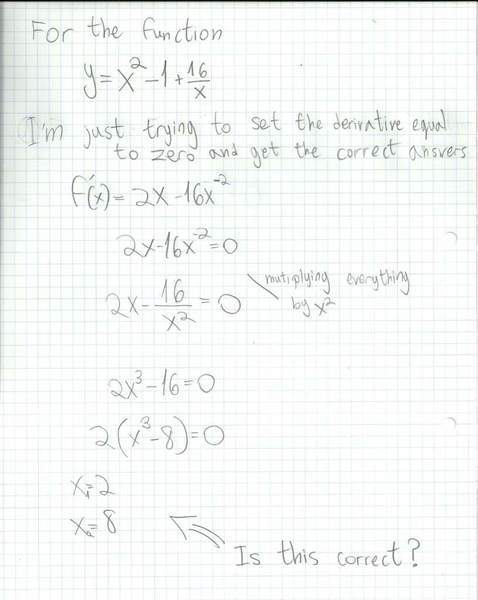 For the function
y = x² - 1 + 16/x
I'm just trying to set the derivative equal
to zero and get the correct answers
f'(x) = 2x - 16x⁻²
2x - 16x⁻² = 0
2x - 16/x² = 0
mutiplying everything
by x²
2x³ - 16 = 0
2(x³ - 8) = 0
x₁ = 2
x₂ = 8
Is this correct?